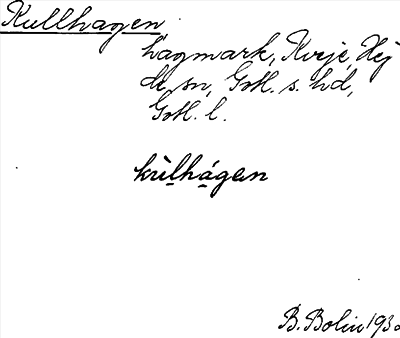 Kullhagen
hagmark, Kveje, Hej
de sn, Gotl. s. hd,
Gotl. l.
kùlhágen
B. Bolin 193